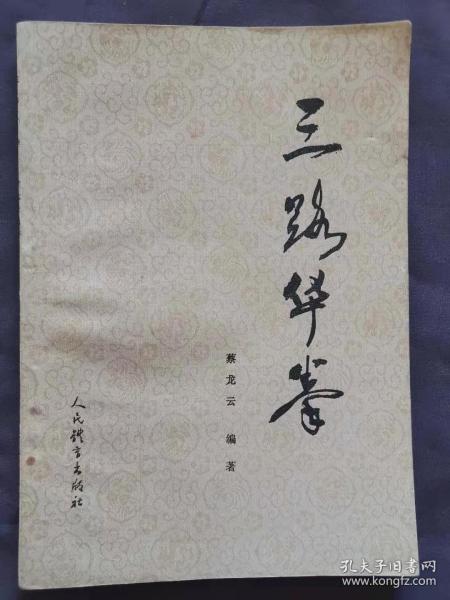 三路华拳
蔡龙云 编著
人民体育出版社
孔夫子旧书网
www.kongfz.com